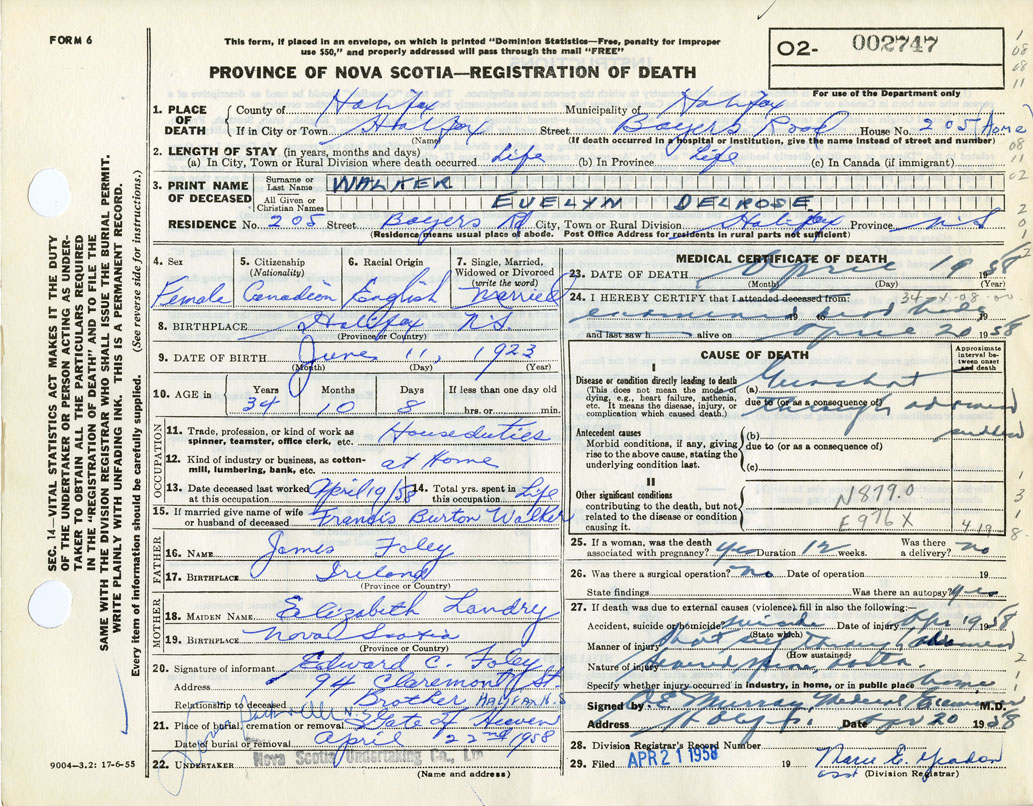 FORM 6
This form, if placed in an envelope, on which is printed "Dominion Statistics—Free, penalty for improper
use $50," and properly addressed will pass through the mail "FREE"
PROVINCE OF NOVA SCOTIA—REGISTRATION OF DEATH
O2- 002747
For use of the Department only
1. PLACE OF DEATH County of Halifax Municipality of Halifax
If in City or Town Halifax Street Bayers Road House No. 205 Home
(Name) (If death occurred in a hospital or institution, give the name instead of street and number)
2. LENGTH OF STAY (in years, months and days)
(a) In City, Town or Rural Division where death occurred Life (b) In Province Life (c) In Canada (if immigrant)
3. PRINT NAME OF DECEASED Surname or Last Name WALKER
All Given or Christian Names EVELYN DELROSE
RESIDENCE No. 205 Street Bayers Rd City, Town or Rural Division Halifax Province N.S
(Residence means usual place of abode. Post Office Address for residents in rural parts not sufficient)
4. Sex 5. Citizenship (Nationality) 6. Racial Origin 7. Single, Married, Widowed or Divorced (write the word)
Female Canadian English Married
8. BIRTHPLACE Halifax N.S.
(Province or Country)
9. DATE OF BIRTH June 11, 1923
(Month) (Day) (Year)
10. AGE in Years Months Days If less than one day old
34 10 8 hrs. or min.
OCCUPATION
11. Trade, profession, or kind of work as spinner, teamster, office clerk, etc. Houseduties
12. Kind of industry or business, as cotton-mill, lumbering, bank, etc. at Home
13. Date deceased last worked at this occupation April 19/58 14. Total yrs. spent in this occupation Life
15. If married give name of wife or husband of deceased Francis Burton Walker
FATHER
16. NAME James Foley
17. BIRTHPLACE Ireland
(Province or Country)
MOTHER
18. MAIDEN NAME Elizabeth Landry
19. BIRTHPLACE Nova Scotia
(Province or Country)
20. Signature of informant Edward C. Foley
Address 94 Claremont St
HALIFAX N.S
Relationship to deceased Brother
21. Place of burial, cremation or removal Gate of Heaven
Date of burial or removal April 22nd 1958
22. UNDERTAKER Nova Scotia Undertaking Co., Ltd
(Name and address)
MEDICAL CERTIFICATE OF DEATH
23. DATE OF DEATH April 19 1958
(Month) (Day) (Year)
24. I HEREBY CERTIFY that I attended deceased from:
examined dead body 19 to 19
and last saw h alive on April 20 1958
CAUSE OF DEATH
Approximate interval between onset and death
I
Disease or condition directly leading to death
(This does not mean the mode of dying, e.g., heart failure, asthenia, etc. It means the disease, injury, or complication which caused death.)
(a) Gunshot
due to (or as a consequence of)
through abdomen
Antecedent causes
Morbid conditions, if any, giving rise to the above cause, stating the underlying condition last.
(b)
due to (or as a consequence of)
(c)
II
Other significant conditions
contributing to the death, but not related to the disease or condition causing it.
N879.0
E976X
25. If a woman, was the death associated with pregnancy? yes Duration 12 weeks. Was there a delivery? no
26. Was there a surgical operation? no Date of operation 19
State findings Was there an autopsy? yes
27. If death was due to external causes (violence), fill in also the following:—
Accident, suicide or homicide? suicide Date of injury Apr 19 1958
(State which)
Manner of injury
(How sustained)
Nature of injury severed spine, aorta.
Specify whether injury occurred in industry, in home, or in public place home
Signed by Murray Medical Examiner M.D.
Address Halifax Date Apr 20 1958
28. Division Registrar's Record Number
29. Filed APR 21 1958 19
(Division Registrar)
SEC. 14—VITAL STATISTICS ACT MAKES IT THE DUTY
OF THE UNDERTAKER OR PERSON ACTING AS UNDER-
TAKER TO OBTAIN ALL THE PARTICULARS REQUIRED
IN THE "REGISTRATION OF DEATH" AND TO FILE THE
SAME WITH THE DIVISION REGISTRAR WHO SHALL ISSUE THE BURIAL PERMIT.
WRITE PLAINLY WITH UNFADING INK. THIS IS A PERMANENT RECORD.
Every item of information should be carefully supplied. (See reverse side for instructions.)
9004—3.2: 17-6-55